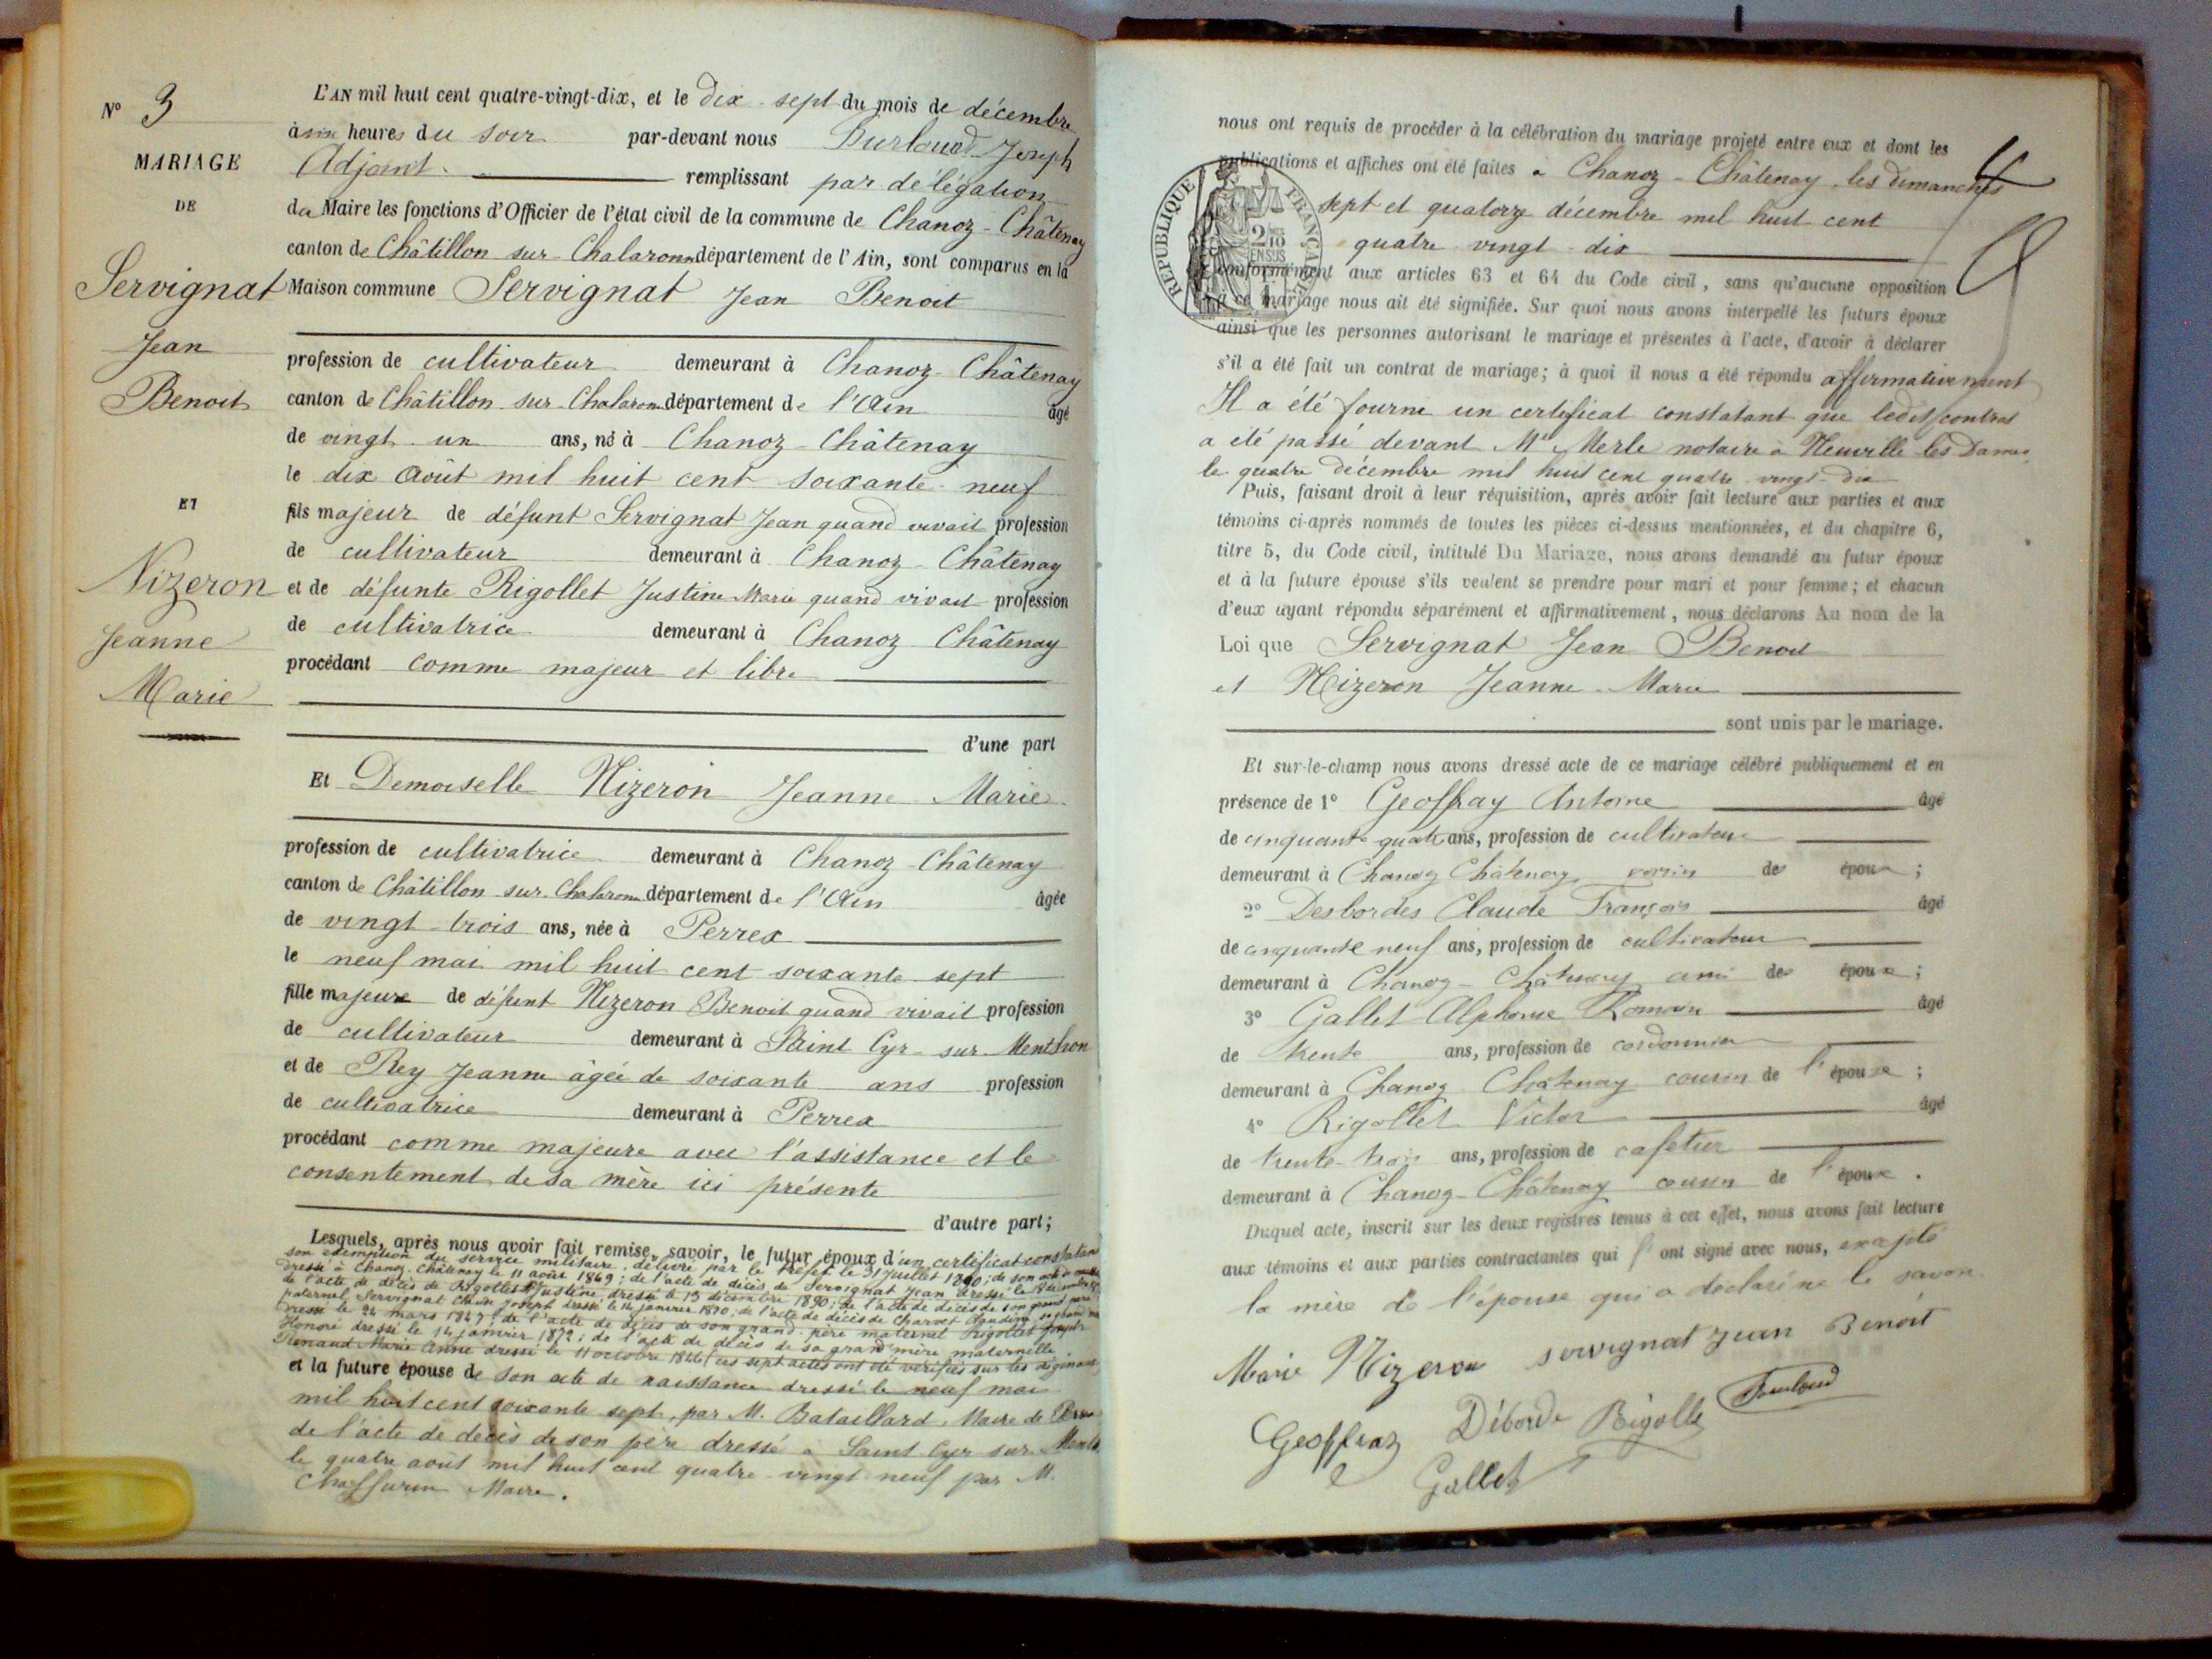 N° 3
MARIAGE
DE
Servignat
Jean
Benoit
ET
Nizeron
Jeanne
Marie
L'AN mil huit cent quatre-vingt-dix, et le dix-sept du mois de décembre
à six heures du soir par-devant nous Joseph
Adjoint remplissant par délégation
du Maire les fonctions d'Officier de l'état civil de la commune de Chanoz-Châtenay
canton de Châtillon-sur-Chalaronne département de l'Ain, sont comparus en la
Maison commune Servignat Jean Benoit
profession de cultivateur demeurant à Chanoz-Châtenay
canton de Châtillon-sur-Chalaronne département de l'Ain âgé
de vingt-un ans, né à Chanoz-Châtenay
le dix Août mil huit cent soixante-neuf
fils majeur de défunt Servignat Jean quand vivait profession
de cultivateur demeurant à Chanoz-Châtenay
et de défunte Rigollet Justine Marie quand vivait profession
de cultivatrice demeurant à Chanoz-Châtenay
procédant comme majeur et libre
d'une part
Et Demoiselle Nizeron Jeanne Marie
profession de cultivatrice demeurant à Chanoz-Châtenay
canton de Châtillon-sur-Chalaronne département de l'Ain âgée
de vingt-trois ans, née à Perrex
le neuf mai mil huit cent soixante-sept
fille majeure de défunt Nizeron Benoit quand vivait profession
de cultivateur demeurant à Saint Cyr-sur-Menthon
et de Rey Jeanne âgée de soixante ans profession
de cultivatrice demeurant à Perrex
procédant comme majeure avec l'assistance et le
consentement de sa mère ici présente
d'autre part;
Lesquels, après nous avoir fait remise, savoir, le futur époux d'un certificat constatant
son exemption du service militaire, délivré par le Préfet le 31 Juillet 1890; de son acte de
dressé à Chanoz-Châtenay le 11 août 1869; de l'acte de décès de Servignat Jean dressé le
de l'acte de décès de Rigollet Justine, dressé le 13 décembre 1890; de l'acte de décès de son grand père
paternel Servignat Joseph dressé le 14 janvier 1870; de l'acte de décès de Charvet Claudine sa grand
dressé le 24 mars 1847; de l'acte de décès de son grand-père maternel Rigollet Joseph
Honoré dressé le 14 janvier 1872; de l'acte de décès de sa grand'mère maternelle
Renaud Marie Anne dressé le 11 octobre (ces sept actes ont été vérifiés sur les originaux)
et la future épouse de son acte de naissance dressé le neuf mai
mil huit cent soixante-sept, par M. Bataillard, Maire de Perrex
de l'acte de décès de son père dressé à Saint Cyr sur
le quatre août mil huit cent quatre-vingt-neuf par M.
Maire.
nous ont requis de procéder à la célébration du mariage projeté entre eux et dont les
publications et affiches ont été faites à Chanoz-Châtenay, les dimanches
sept et quatorze décembre mil huit cent
quatre-vingt-dix
conformément aux articles 63 et 64 du Code civil, sans qu'aucune opposition
à ce mariage nous ait été signifiée. Sur quoi nous avons interpellé les futurs époux
ainsi que les personnes autorisant le mariage et présentes à l'acte, d'avoir à déclarer
s'il a été fait un contrat de mariage; à quoi il nous a été répondu affirmativement
Il a été fourni un certificat constatant que ledit contrat
a été passé devant Me Merle notaire à Neuville-les-Dames
le quatre décembre mil huit cent quatre-vingt-dix
Puis, faisant droit à leur réquisition, après avoir fait lecture aux parties et aux
témoins ci-après nommés de toutes les pièces ci-dessus mentionnées, et du chapitre 6,
titre 5, du Code civil, intitulé Du Mariage, nous avons demandé au futur époux
et à la future épouse s'ils veulent se prendre pour mari et pour femme; et chacun
d'eux ayant répondu séparément et affirmativement, nous déclarons Au nom de la
Loi que Servignat Jean Benoit
et Nizeron Jeanne-Marie
sont unis par le mariage.
Et sur-le-champ nous avons dressé acte de ce mariage célébré publiquement et en
présence de 1° Geoffray Antoine âgé
de cinquante-quatre ans, profession de cultivateur
demeurant à Chanoz-Châtenay voisin des époux;
2° Desbordes Claude François âgé
de cinquante neuf ans, profession de cultivateur
demeurant à Chanoz-Châtenay ami des époux;
3° Gallet Alphonse Romain âgé
de trente ans, profession de cordonnier
demeurant à Chanoz-Châtenay cousin de l'épouse;
4° Rigollet Victor âgé
de trente-trois ans, profession de cafetier
demeurant à Chanoz-Châtenay cousin de l'époux.
Duquel acte, inscrit sur les deux registres tenus à cet effet, nous avons fait lecture
aux témoins et aux parties contractantes qui l'ont signé avec nous, excepté
la mère de l'épouse qui a déclaré ne le savoir
Marie Nizeron servignat Jean Benoit
Geoffray Déborde Rigollet
Gallet
REPUBLIQUE FRANÇAISE